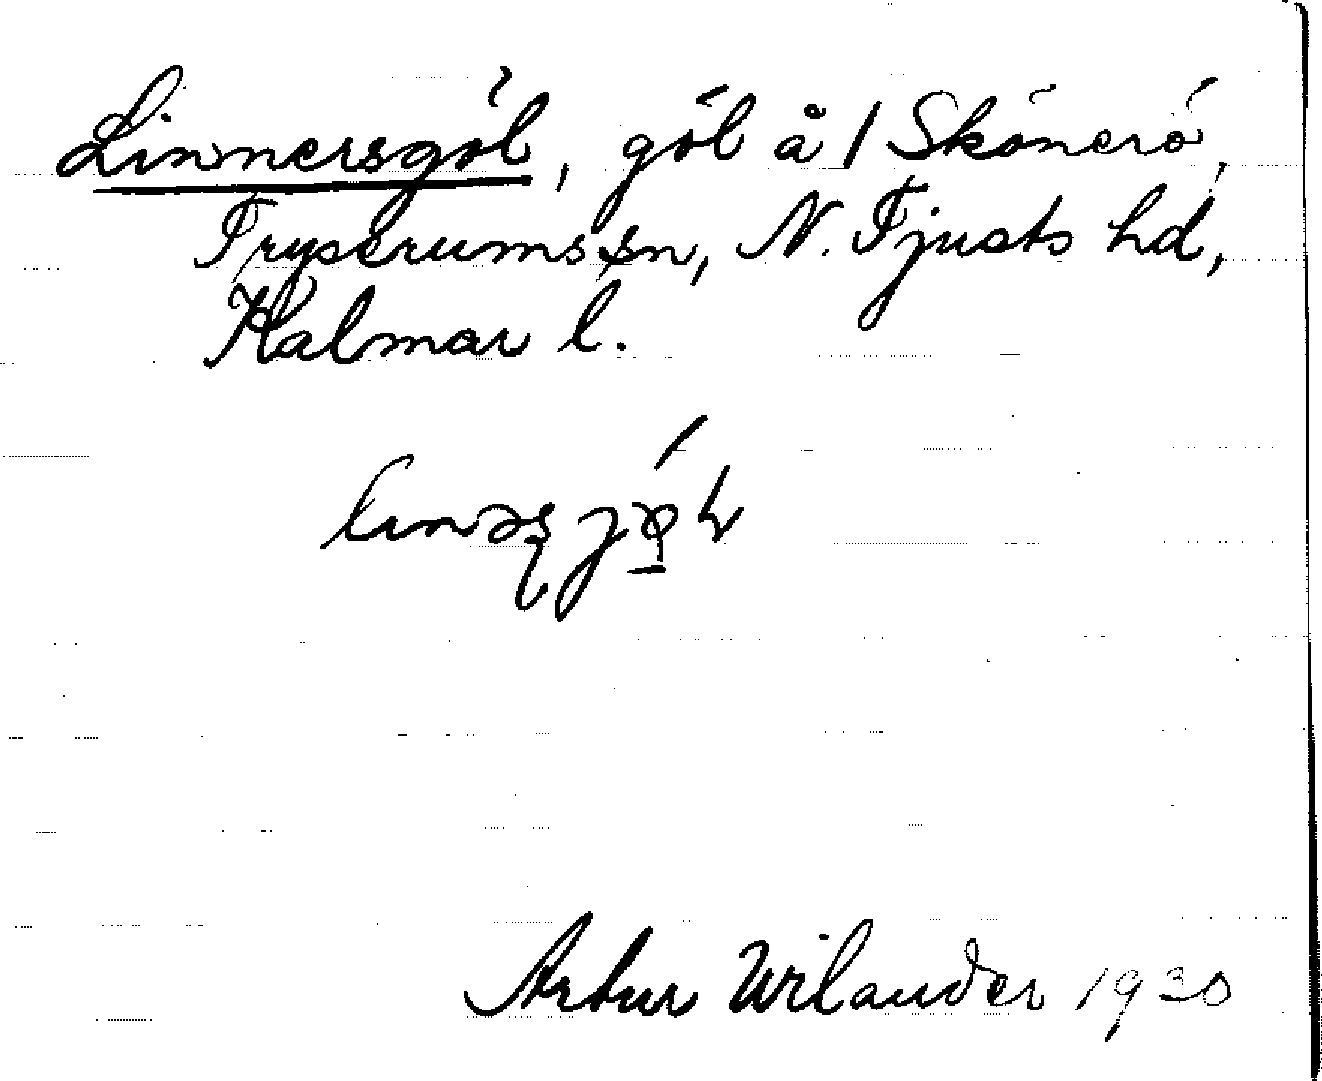 Linnersgöl, göl å 1 Skönerö,
Tryserums sn, N. Tjusts hd,
Kalmar l.
Artur Wilander 1930